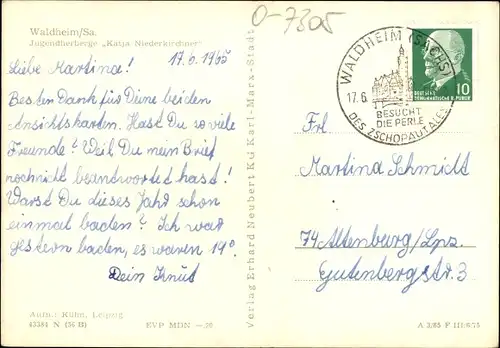 O-7305
Waldheim/Sa.
Jugendherberge „Katja Niederkirchner"
17.6.1965
Liebe Martina!
Besten Dank für Deine beiden
Ansichskarten. Hast Du so viele
Freunde? Weil Du mein Brief
noch nilt beantwordet hast!
Warst Du dieses Jahr schon
einmal baden? Ich war
gestern baden, es waren 19°.
Dein Knut
Aufn.: Kühn, Leipzig
43384 N (56 B) EVP MDN -,20
Verlag Erhard Neubert KG Karl-Marx-Stadt
WALDHEIM (SACHS)
17.6.
BESUCHT
DIE PERLE
DES ZSCHOPAUTALES
DEUTSCHE
DEMOKRATISCHE REPUBLIK
10
Frl.
Martina Schmidt
74 Altenburg/Lpz.
Gutenbergstr. 3
A 3/65 F III/6/75